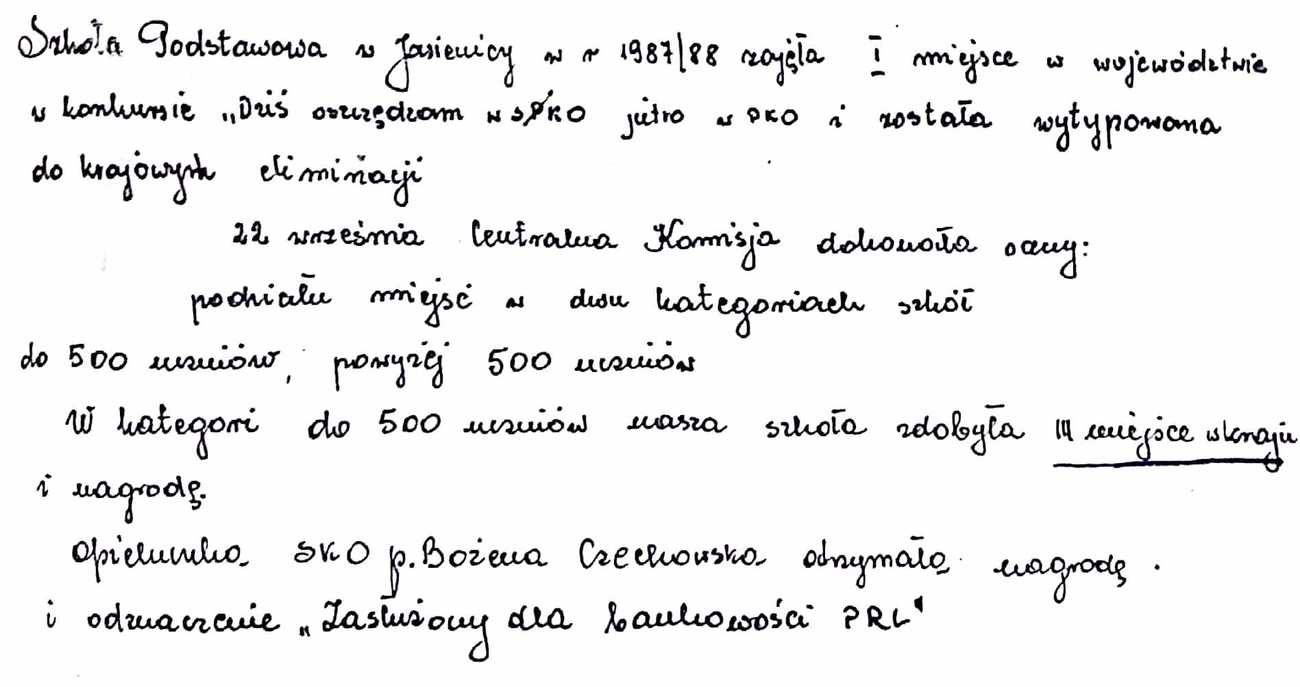 Szkoła Podstawowa w Jasienicy w r 1987/88 zajęła I miejsce w województwie
w konkursie „Dziś oszczędzam w SKO jutro w PKO i została wytypowana
do krajowych eliminacji
22 września Centralna Komisja dokonała oceny:
podziału miejsć w dwu kategoriach szkół
do 500 uczniów, powyżej 500 uczniów
W kategori do 500 uczniów nasza szkoła zdobyła III miejsce w kraju
i nagrodę.
Opiekunka SKO p. Bożena Czechowska otrzymała nagrodę.
i odznaczenie „Zasłużony dla bankowości PRL"